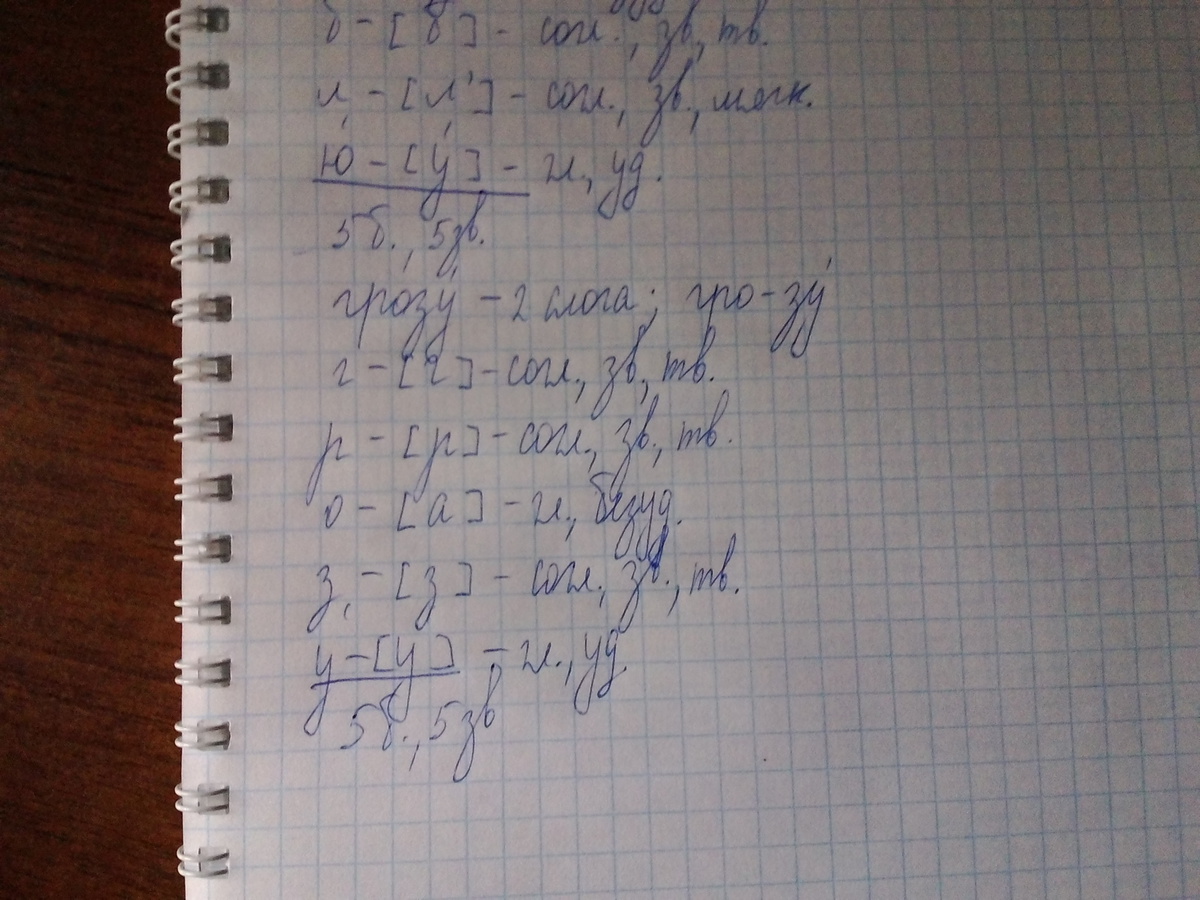 б - [б] - согл., зв., тв.
л - [л'] - согл., зв., мягк.
ю́ - [у́] - гл., уд.
5б., 5зв.
грозу́ - 2 слога; гро-зу́
г - [г] - согл., зв., тв.
р - [р] - согл., зв., тв.
о - [а] - гл., безуд.
з, - [з] - согл., зв., тв.
у - [у] - гл., уд.
5б., 5зв